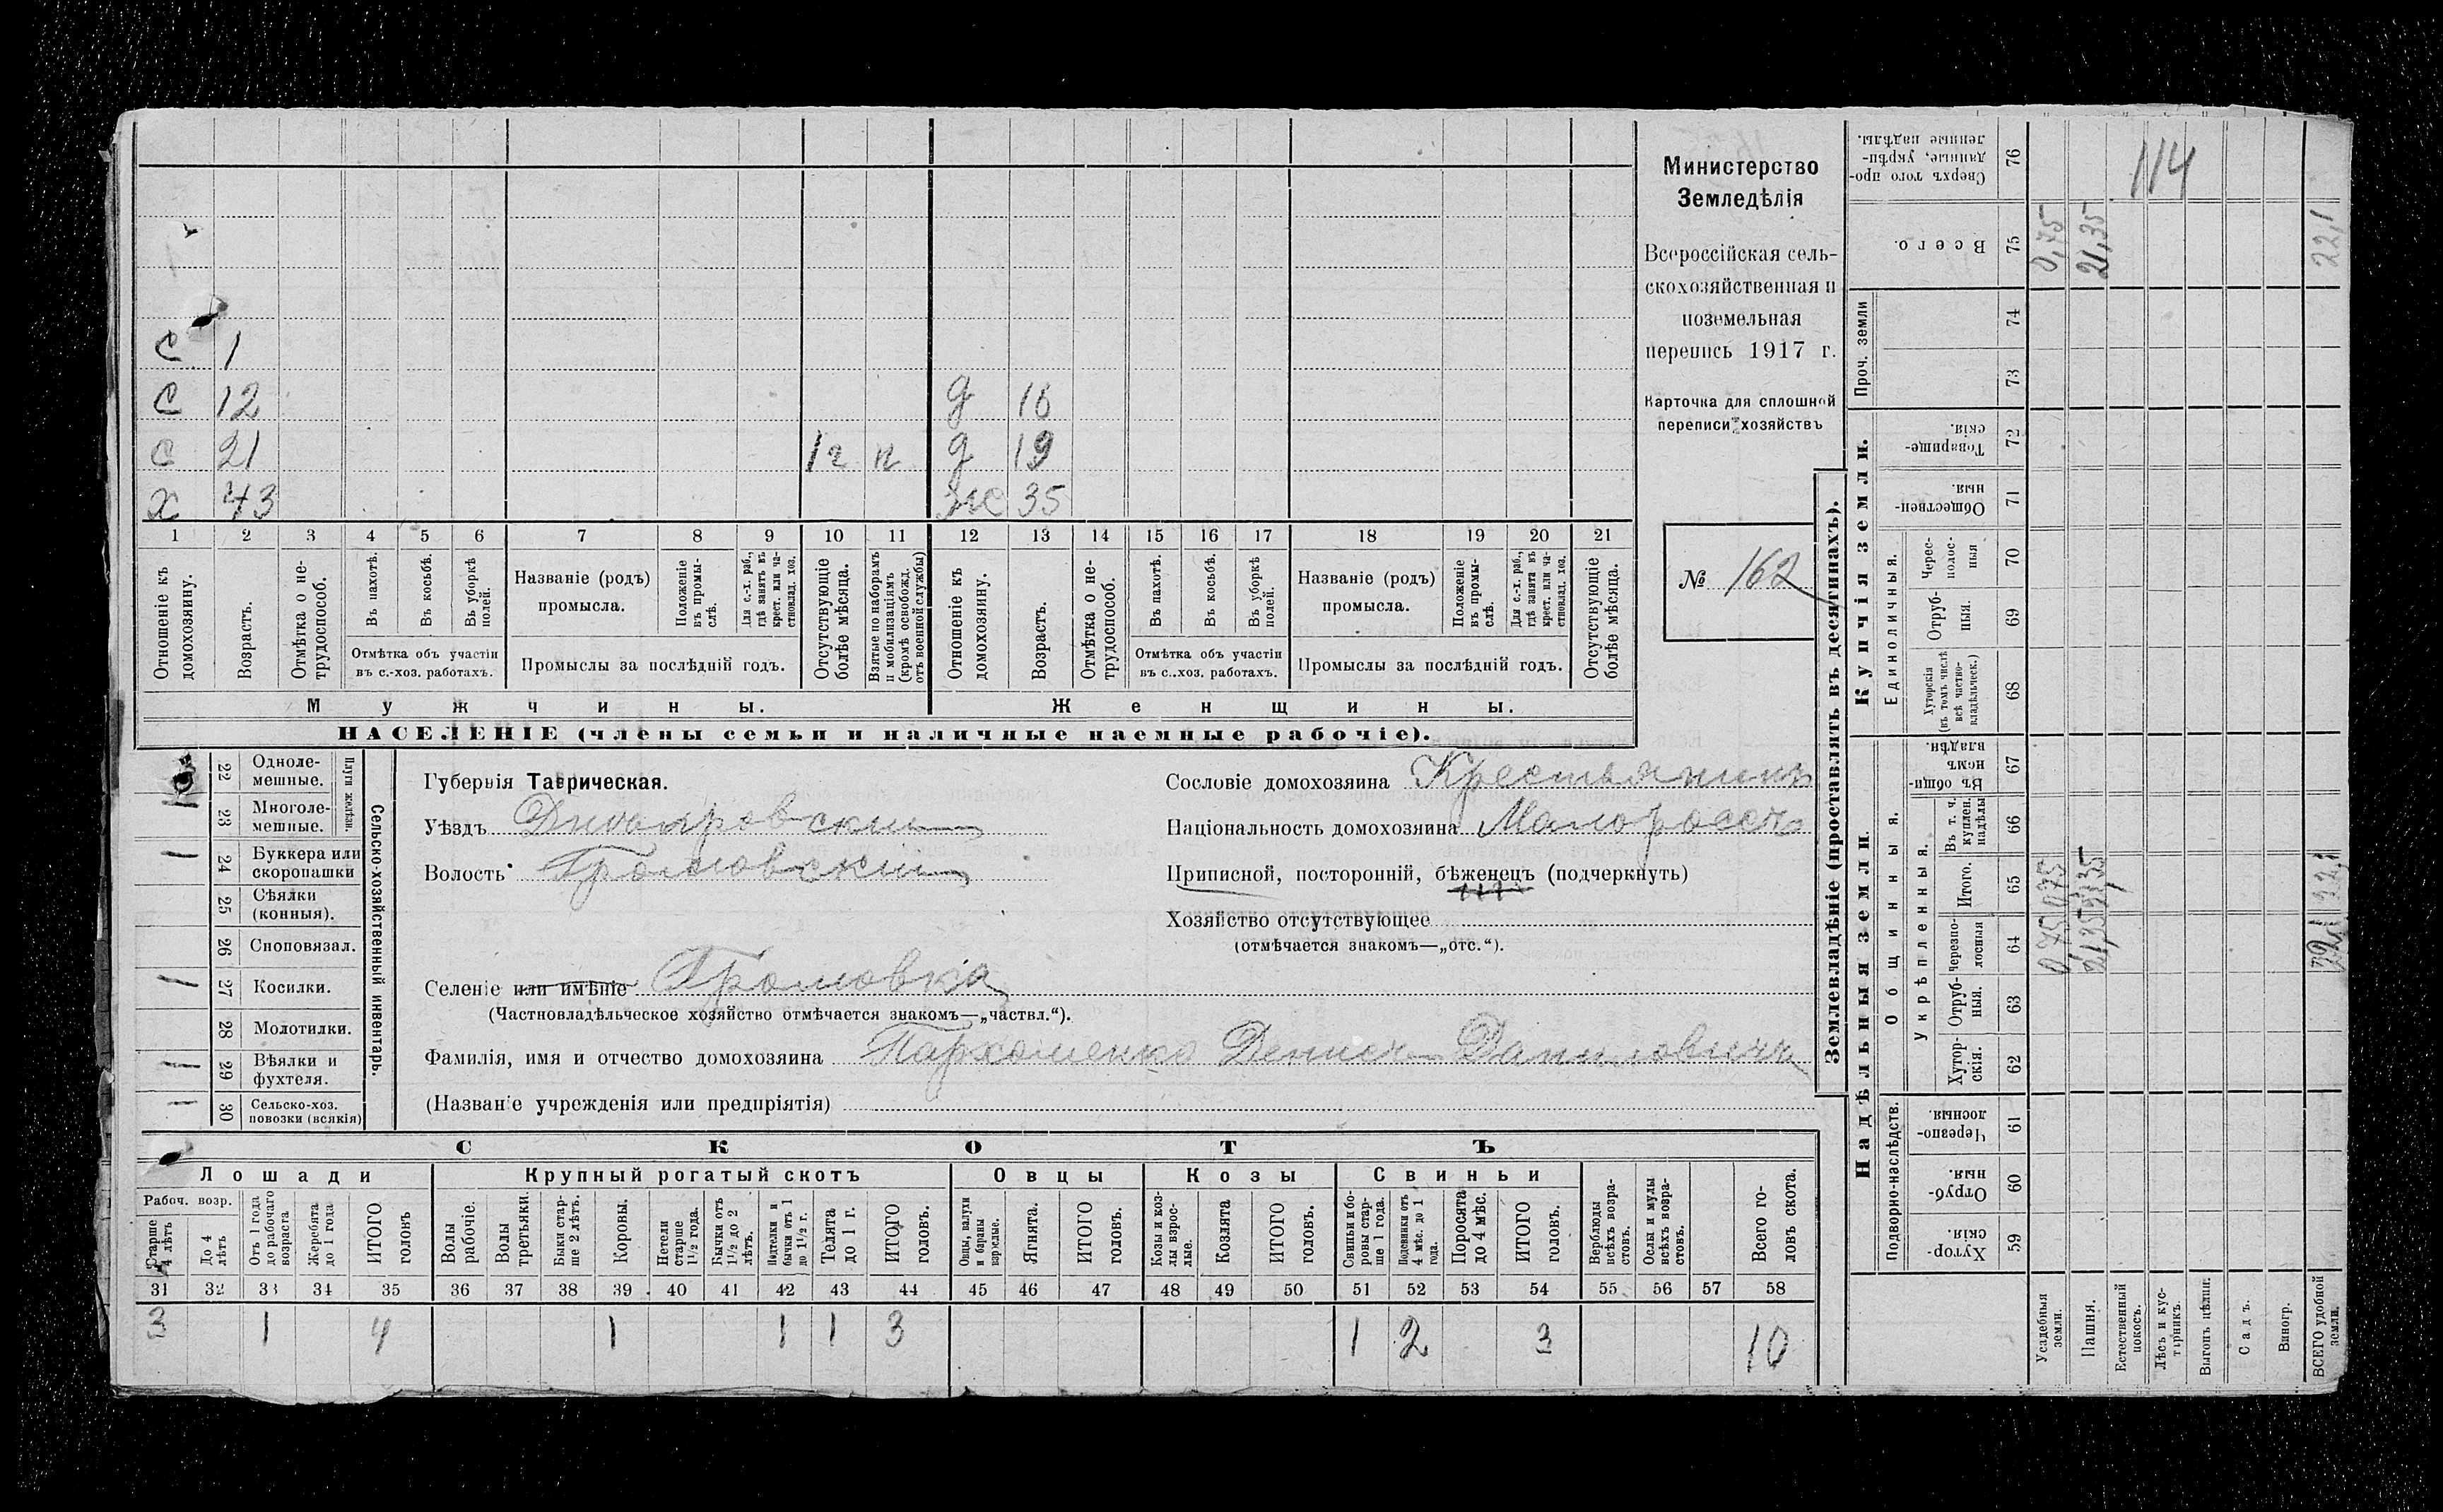 Министерство
Земледѣлія
Всероссійская сель-
скохозяйственная и
поземельная
перепись 1917 г.
Карточка для сплошной
переписи хозяйствъ
№ 162
С 1
С 12 д 16
С 21 1г н д 19
Х 43 ж 35
1 2 3 4 5 6 7 8 9 10 11 12 13 14 15 16 17 18 19 20 21
Отношеніе къ домохозяину.
Возрастъ.
Отмѣтка о не-трудоспособ.
Въ пахотѣ.
Въ косьбѣ.
Въ уборкѣ полей.
Отмѣтка объ участіи
въ с.-хоз. работахъ.
Названіе (родъ)
промысла.
Положеніе въ промы-слѣ.
Для с.-х. раб., гдѣ занятъ въ крест. или ча-стновлад. хоз.
Промыслы за послѣдній годъ.
Отсутствующіе болѣе мѣсяца.
Взятые по наборамъ и мобилизаціямъ (кромѣ освобожд. отъ военной службы)
Отношеніе къ домохозяину.
Возрастъ.
Отмѣтка о не-трудоспособ.
Въ пахотѣ.
Въ косьбѣ.
Въ уборкѣ полей.
Отмѣтка объ участіи
въ с..хоз. работахъ.
Названіе (родъ)
промысла.
Положеніе въ промы-слѣ.
Для с.-х. раб., гдѣ занята въ крест. или ча-стновлад. хоз.
Промыслы за послѣдній годъ.
Отсутствующіе болѣе мѣсяца.
Мужчины. Женщины.
НАСЕЛЕНІЕ (члены семьи и наличные наемные рабочіе).
Сельско-хозяйственный инвентарь.
Плуги желѣзн.
22 Одноле-мешные.
1 23 Многоле-мешные.
1 24 Буккера или скоропашки
25 Сѣялки (конныя).
26 Сноповязал.
1 27 Косилки.
28 Молотилки.
1 29 Вѣялки и фухтеля.
1 30 Сельско-хоз. повозки (всякія)
Губернія Таврическая.
Уѣздъ Днѣпровскій
Волость Громовский
Селеніе или имѣніе Громовка
(Частновладѣльческое хозяйство отмѣчается знакомъ—„частвл.“).
Фамилія, имя и отчество домохозяина Пархоменко Денисъ Даниловичъ
(Названіе учрежденія или предпріятія)
Сословіе домохозяина Крестьянинъ
Національность домохозяина Малороссъ
Приписной, посторонній, бѣженецъ (подчеркнуть)
Хозяйство отсутствующее
(отмѣчается знакомъ—„отс.“).
СКОТЪ
Лошади Крупный рогатый скотъ Овцы Козы Свиньи
Рабоч. возр.
Старше 4 лѣтъ
До 4 лѣтъ
Отъ 1 года до рабочаго возраста
Жеребята до 1 года
ИТОГО головъ
Волы рабочіе.
Волы третьяки.
Быки стар-ше 2 лѣтъ.
Коровы.
Нетели старше 1½ года.
Бычки отъ 1½ до 2 лѣтъ.
Подтелки и бычки отъ 1 до 1½ г.
Телята до 1 г.
ИТОГО головъ.
Овцы, валухи и бараны взрослые.
Ягнята.
ИТОГО головъ.
Козы и коз-лы взрос-лые.
Козлята
ИТОГО головъ.
Свиньи и бо-ровы стар-ше 1 года.
Подсвинки отъ 4 мѣс. до 1 года.
Поросята до 4 мѣс.
ИТОГО головъ.
Верблюды всѣхъ возра-стовъ.
Ослы и мулы всѣхъ возра-стовъ.
Всего го-ловъ скота.
31 32 33 34 35 36 37 38 39 40 41 42 43 44 45 46 47 48 49 50 51 52 53 54 55 56 57 58
3 1 4 1 1 1 3 1 2 3 10
Землевладѣніе (проставлять въ десятинахъ).
Надѣльныя земли
Купчія земли.
Проч. земли
Подворно-наслѣдств.
Общинныя.
Укрѣпленныя.
Единоличныя.
59 Хутор-скія.
60 Отруб-ныя.
61 Черезпо-лосныя.
62 Хутор-скія.
63 Отруб-ныя.
64 Черезпо-лосныя
65 Итого.
66 Въ т. ч. куплен. надѣлы
67 Въ общи-номъ владѣн.
68 Хуторскія (въ томъ числѣ всѣ частно-владѣльческ.)
69 Отруб-ныя.
70 Черес-полос-ныя
71 Обществен-ныя.
72 Товарище-скія.
73
74
75 Всего.
76 Сверхъ того про-данные, укрѣп-ленные надѣлы.
Усадебныя земли. 0,75 0,75 0,75
Пашня. 21,35 21,35 21,35
Естественный покосъ.
Лѣсъ и кус-тарникъ.
Выгонъ цѣлин.
Садъ.
Виногр.
ВСЕГО удобной земли. 22,1 22,1 22,1
114